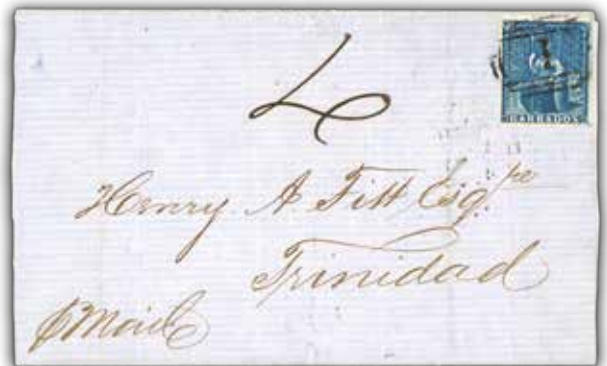 1
BARBADOS
4
Henry A Fitt Esqre
Trinidad
p Mail